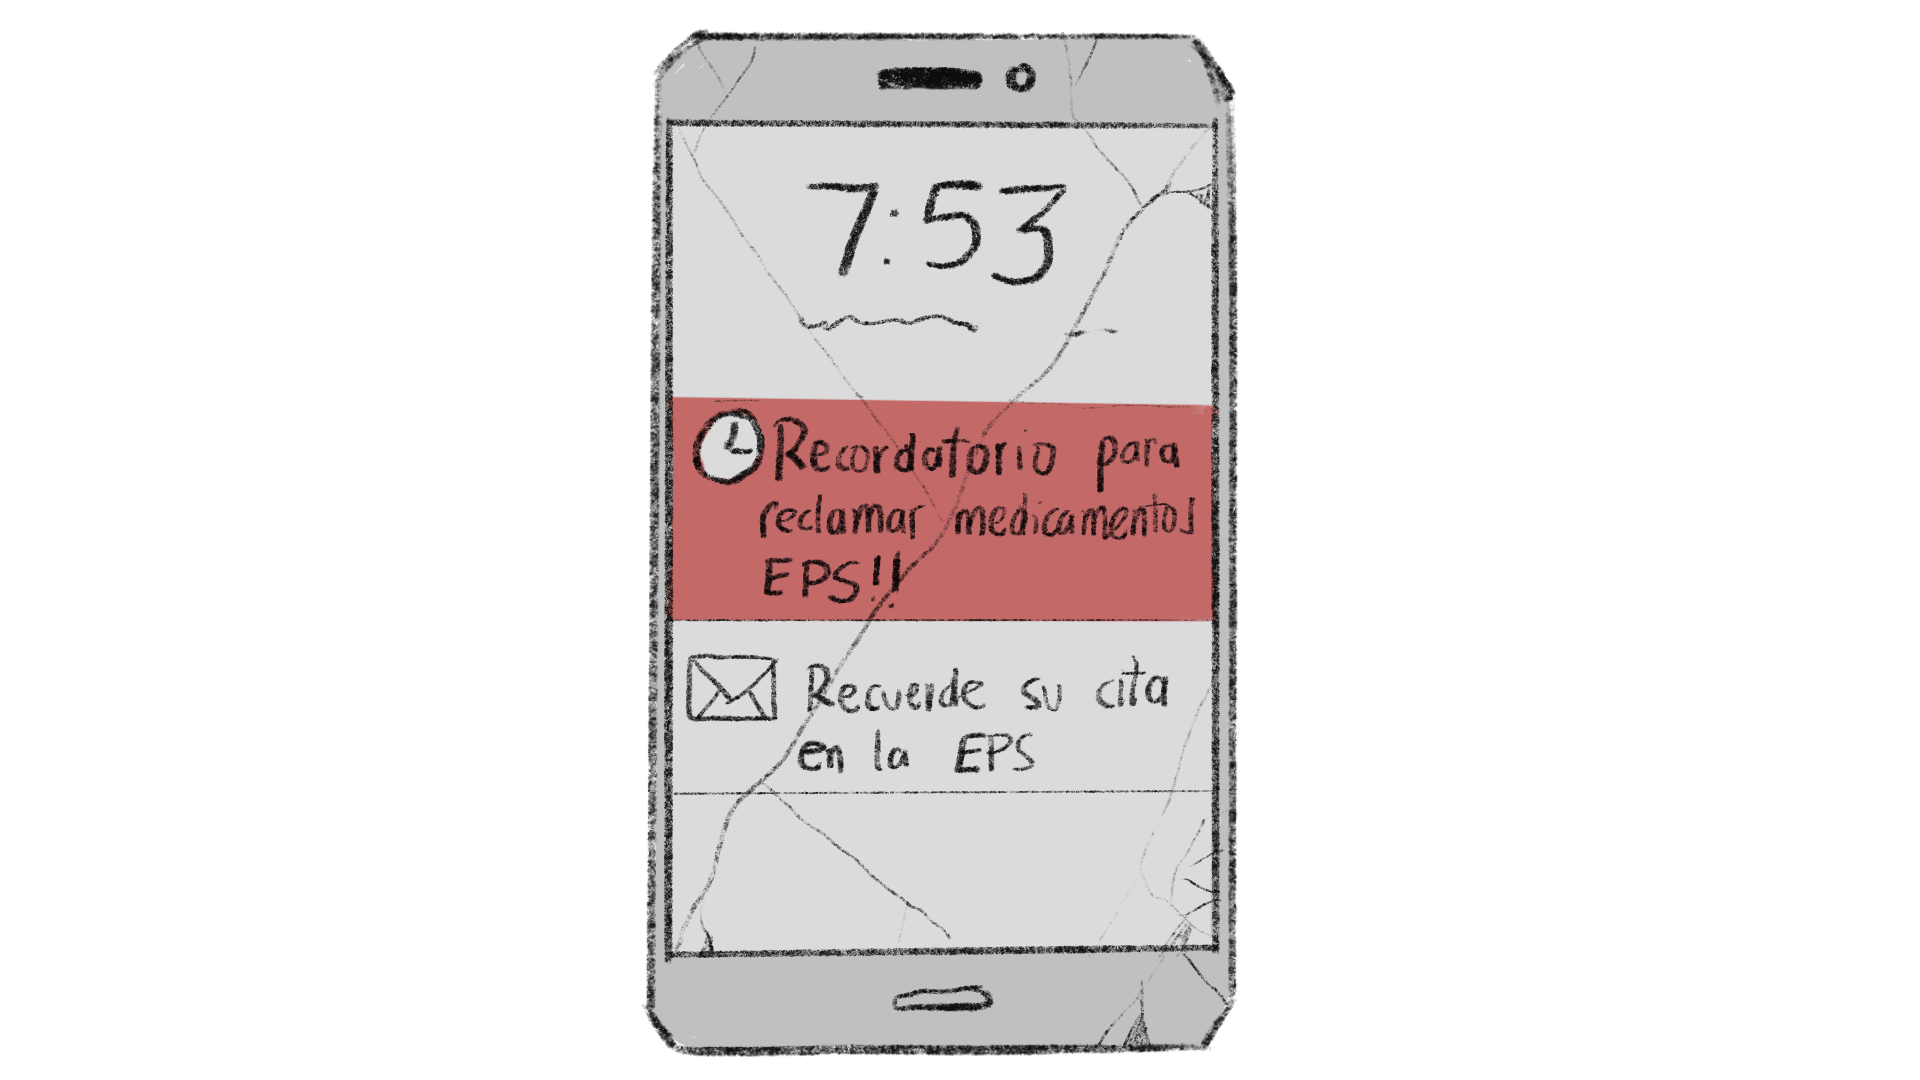 7:53
Recordatorio para
reclamar medicamentos
EPS!!
Recuerde su cita
en la EPS